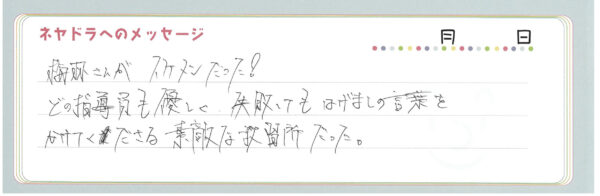 ネヤドラへのメッセージ
月 日
さんが イケメンだった!
どの指導員も優しく、失敗してもはげましの言葉を
かけてくださる素敵な教習所だった。